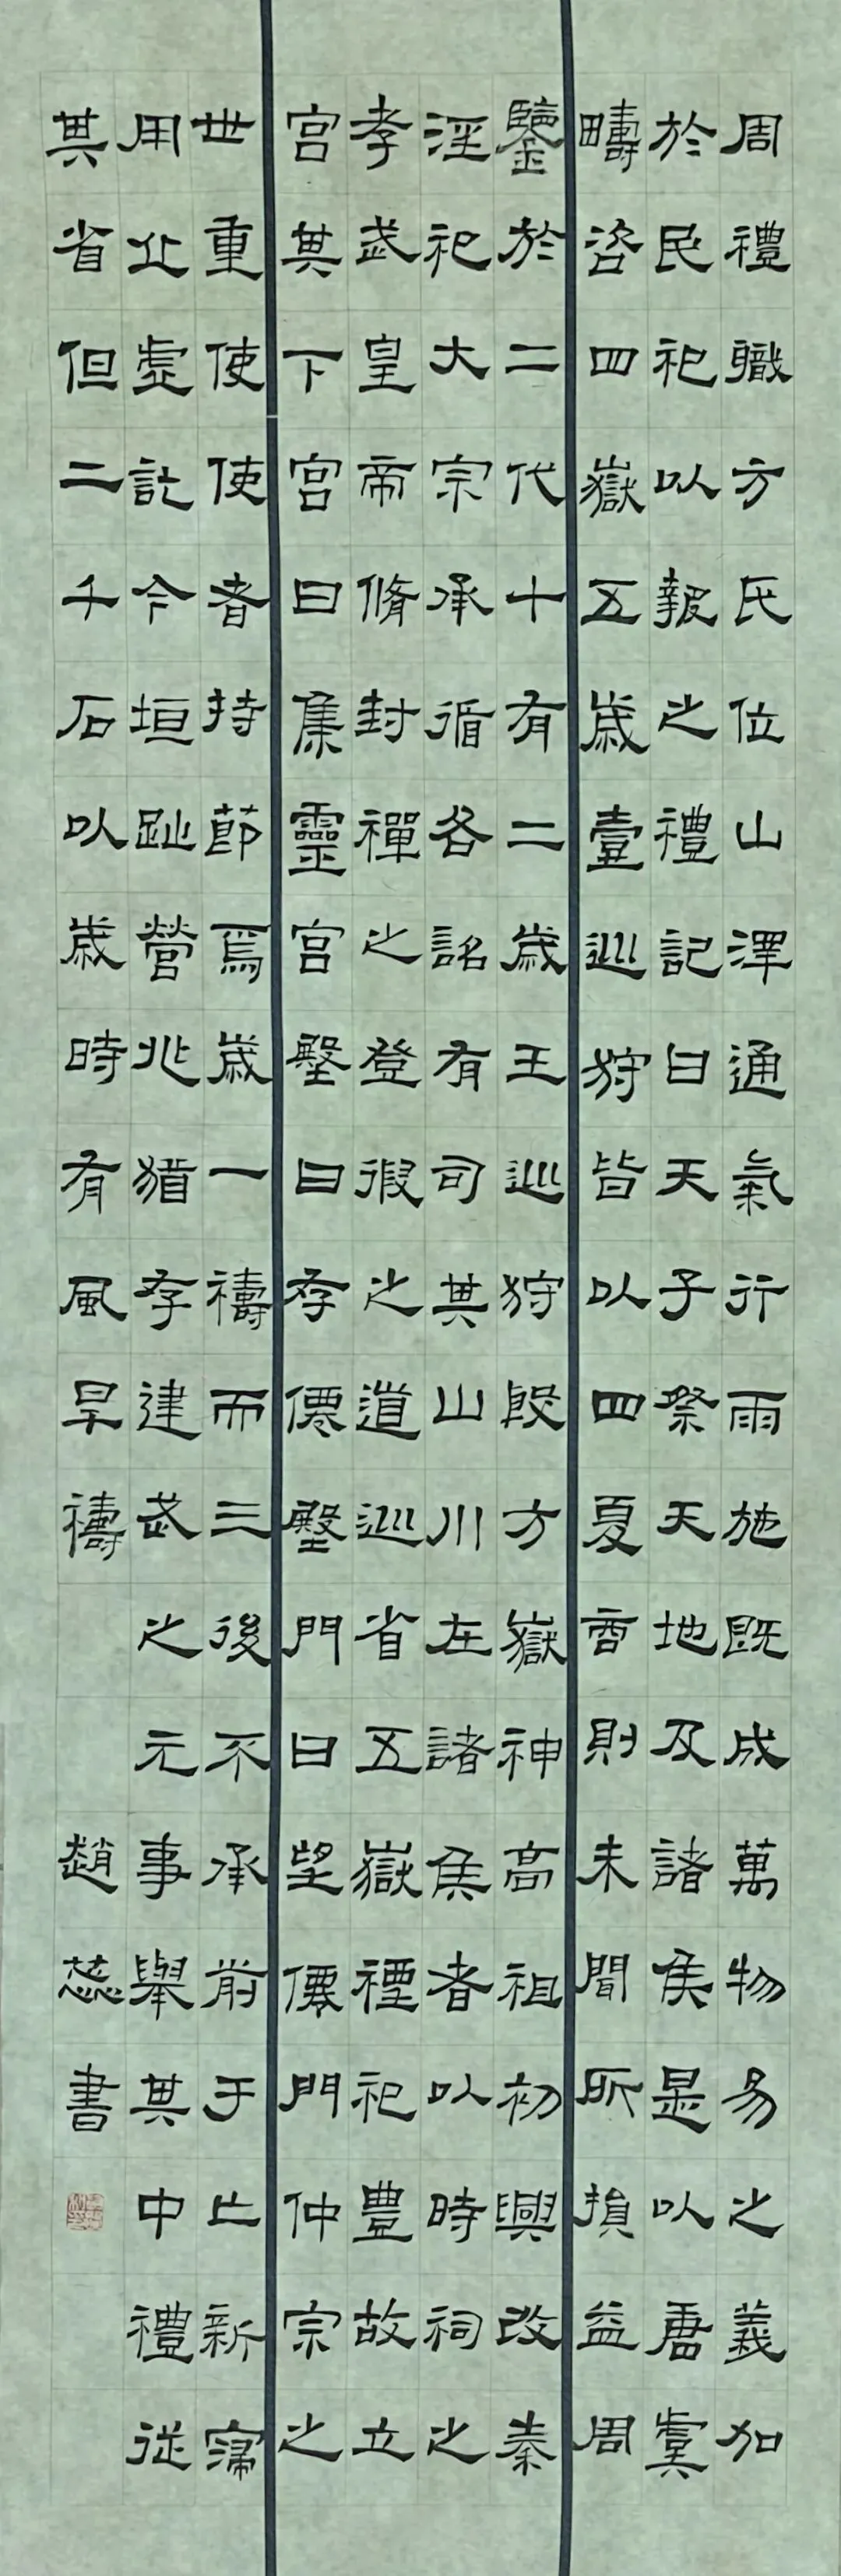 周禮職方氏位山澤通氣行雨施既成萬物易之義加
於民祀以報之禮記曰天子祭天地及諸侯是以唐虞
疇咨四嶽五歲壹巡狩皆以四夏商則未聞所損益周
鑒於二代十有二歲王巡狩殷方嶽神高祖初興改秦
淫祀大宗承循各詔有司其山川在諸侯者以時祠之
孝武皇帝脩封禪之登假之道巡省五嶽禋祀豊故立
宮其下宮曰集靈宮壂曰存僊壂門曰望僊門仲宗之
世重使使者持節焉歲一禱而三後不承前于亡新寖
用丘虛訖今垣趾營兆猶存建武之元事舉其中禮從
其省但二千石以歲時有風旱禱
趙蕊書